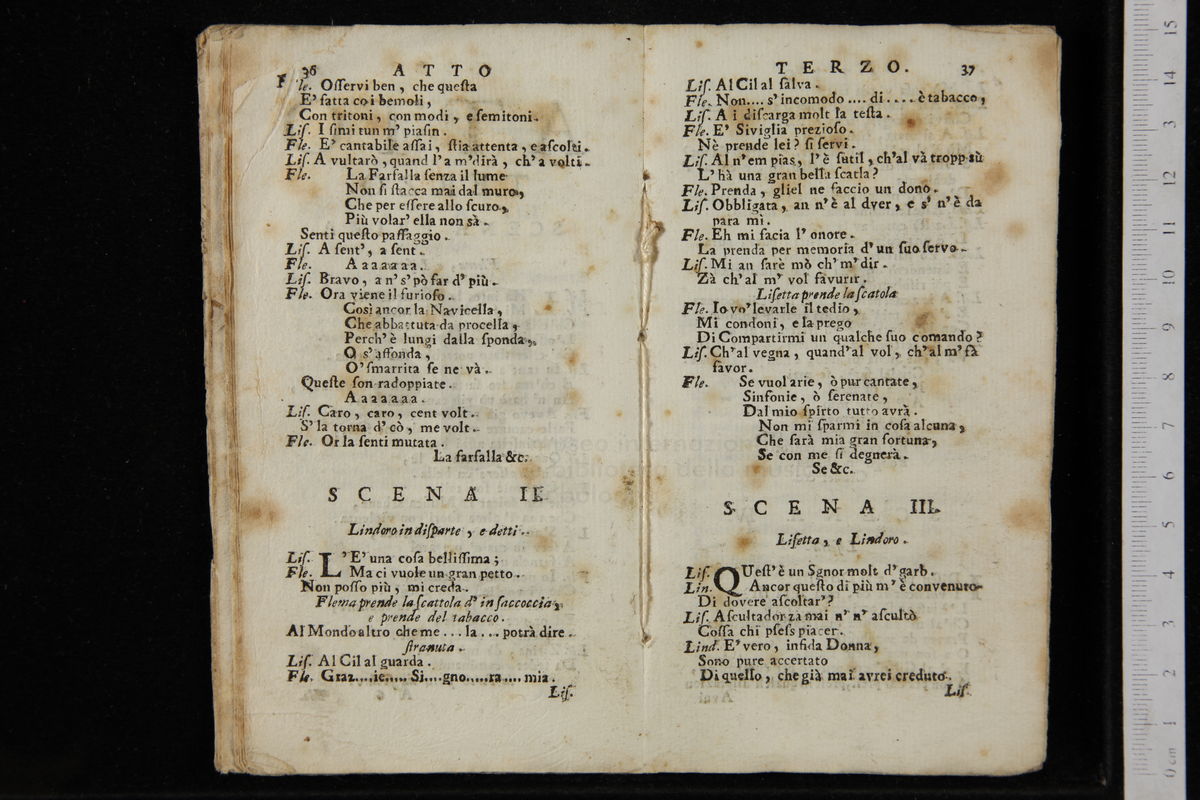 36 ATTO
Fle. Oſſervi ben, che queſta
E' fatta co i bemoli,
Con tritoni, con modi, e ſemitoni.
Liſ. I ſimitun m' piaſin.
Fle. E' cantabile aſſai, ſtia attenta, e aſcolti.
Liſ. A vultarò, quand l'a m'dirà, ch'a volti.
Fle. La Farfalla ſenza il lume
Non ſi ſtacca mai dal muro,
Che per eſſere allo ſcuro,
Più volar' ella non sà.
Senti queſto paſſaggio.
Liſ. A ſent', a ſent.
Fle. A a a a a a a.
Liſ. Bravo, a n' s' pò far d' più.
Fle. Ora viene il furioſo.
Così ancor la Navicella,
Che abbattuta da procella,
Perch' è lungi dalla ſponda,
O s' affonda,
O' ſmarrita ſe ne và.
Queſte ſon radoppiate.
A a a a a a a.
Liſ. Caro, caro, cent volt.
S' la torna d' cò, me volt.
Fle. Or la ſenti mutata.
La farfalla &c.
SCENA II.
Lindoro in diſparte, e detti.
Liſ. L'E' una coſa belliſſima;
Fle. Ma ci vuole un gran petto.
Non poſſo più, mi creda.
Flema prende la ſcattola d' in ſaccoccia,
e prende del tabacco.
Al Mondo altro che me ... la ... potrà dire.
ſtranuta.
Liſ. Al Cil al guarda.
Fle. Graz....ie..... Si....gno.....ra.... mia.
Liſ.
TERZO. 37
Liſ. Al Cil al ſalva.
Fle. Non.... s' incomodo .... di .... è tabacco,
Liſ. A i diſcarga molt la teſta.
Fle. E' Siviglia prezioſo.
Nè prende lei? ſi ſervi.
Liſ. Al n'em pias, l' è ſutil, ch'al và tropp sù
L' hà una gran bella ſcatla?
Fle. Prenda, gliel ne faccio un dono.
Liſ. Obbligata, an n' è al dver, e s' n' è da
para mì.
Fle. Eh mi facia l' onore.
La prenda per memoria d' un ſuo ſervo.
Liſ. Mi an ſarè mò ch' m' dir.
Zà ch'al m' vol favurir.
Liſetta prende la ſcatola
Fle. Io vo' levarle il tedio,
Mi condoni, e la prego
Di Compartirmi un qualche ſuo comando?
Liſ. Ch'al vegna, quand'al vol, ch'al m' fà
favor.
Fle. Se vuol arie, ò pur cantate,
Sinfonie, ò ſerenate,
Dal mio ſpirto tutto avrà.
Non mi ſparmi in coſa alcuna,
Che ſarà mia gran fortuna,
Se con me ſi degnerà.
Se &c.
SCENA III.
Liſetta, e Lindoro.
Liſ. QUeſt' è un Sgnor molt d' garb.
Lin. Ancor queſto di più m' è convenuto
Di dovere aſcoltar'?
Liſ. Aſcultador zà mai n' n' aſcultò
Coſſa chi pſeſs piacer.
Lind. E' vero, infida Donna,
Sono pure accertato
Di quello, che già mai avrei creduto.
Liſ.